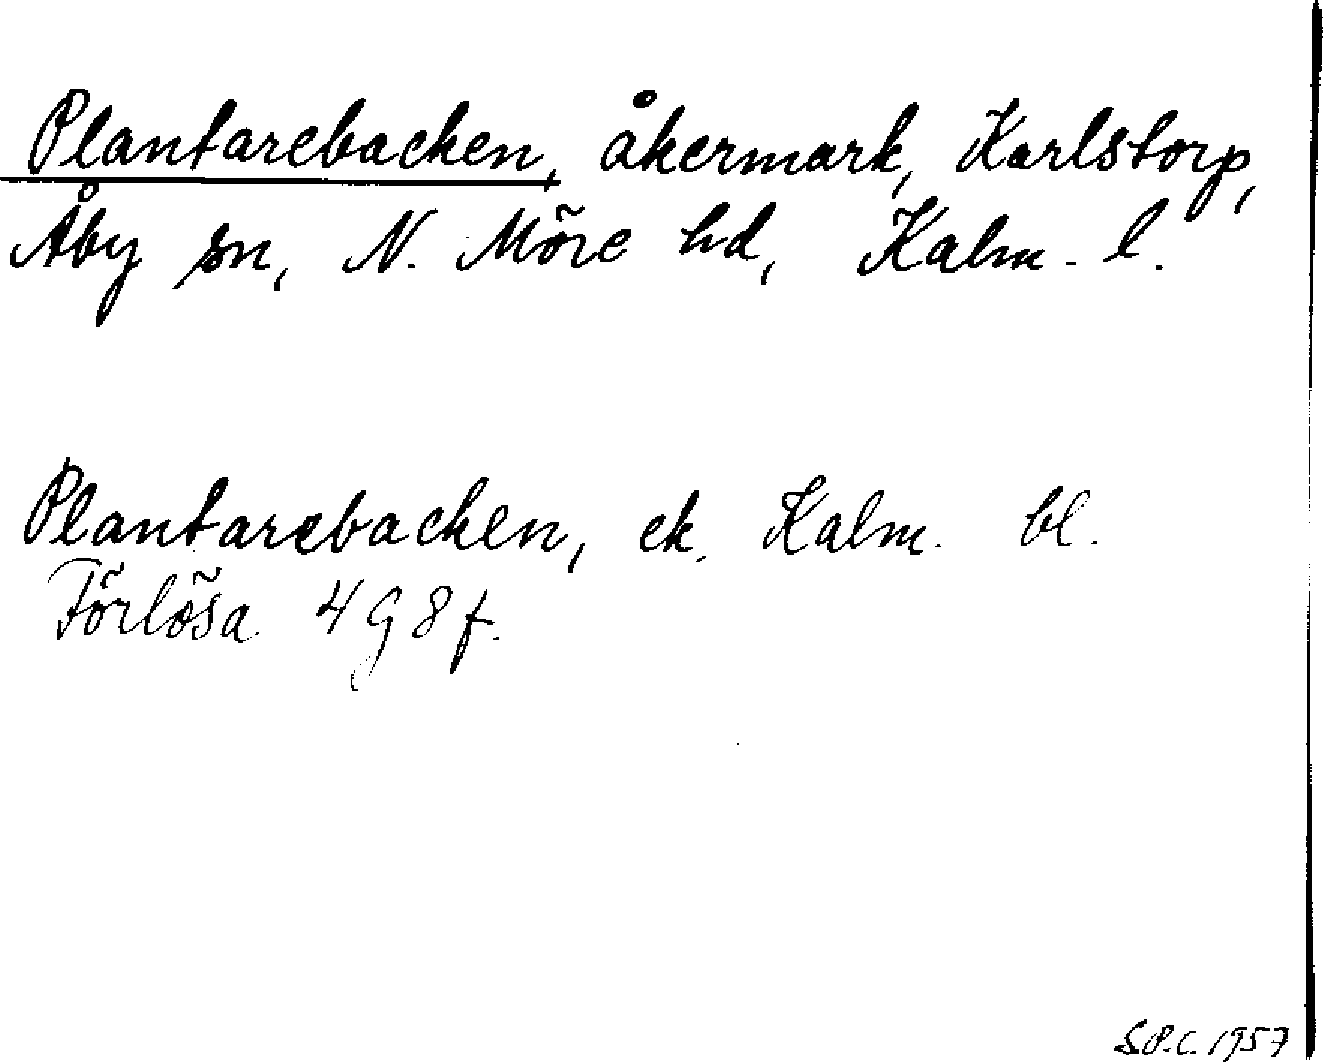 Plantarebacken, åkermark, Karlstorp,
Åby sn, N. Möre hd, Kalm. l.
Plantarebacken, ek. Kalm. bl.
Förlösa 4G8f.
S.P.C. 1957